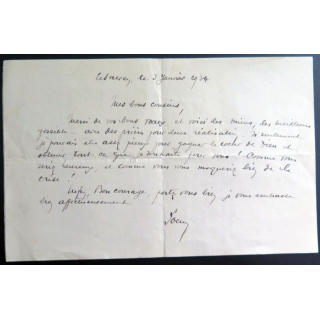 le 3 Janvier 1934
Mes bons cousins,
Merci de vos bons voeux, et voici des miens, les meilleurs
possible - avec des prières pour leur réalisation, si seulement
je pouvais être assez pieux pour gagner le coeur de Dieu et
obtenir tout ce que je souhaite pour vous ! Comme vous
seriez heureux, et comme vous vous moqueriez bien de la
crise !
Enfin, Bon courage, portez vous bien, je vous embrasse
bien affectueusement